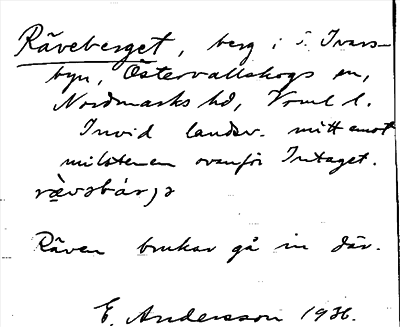 Räveberget, berg i S. Ivars-
byn, Östervallskogs sn,
Nordmarks hd, Vrml l.
Invid landsv. mitt emot
milstenen ovanför Intaget.
Räven brukar gå in där.
E. Andersson 1936.